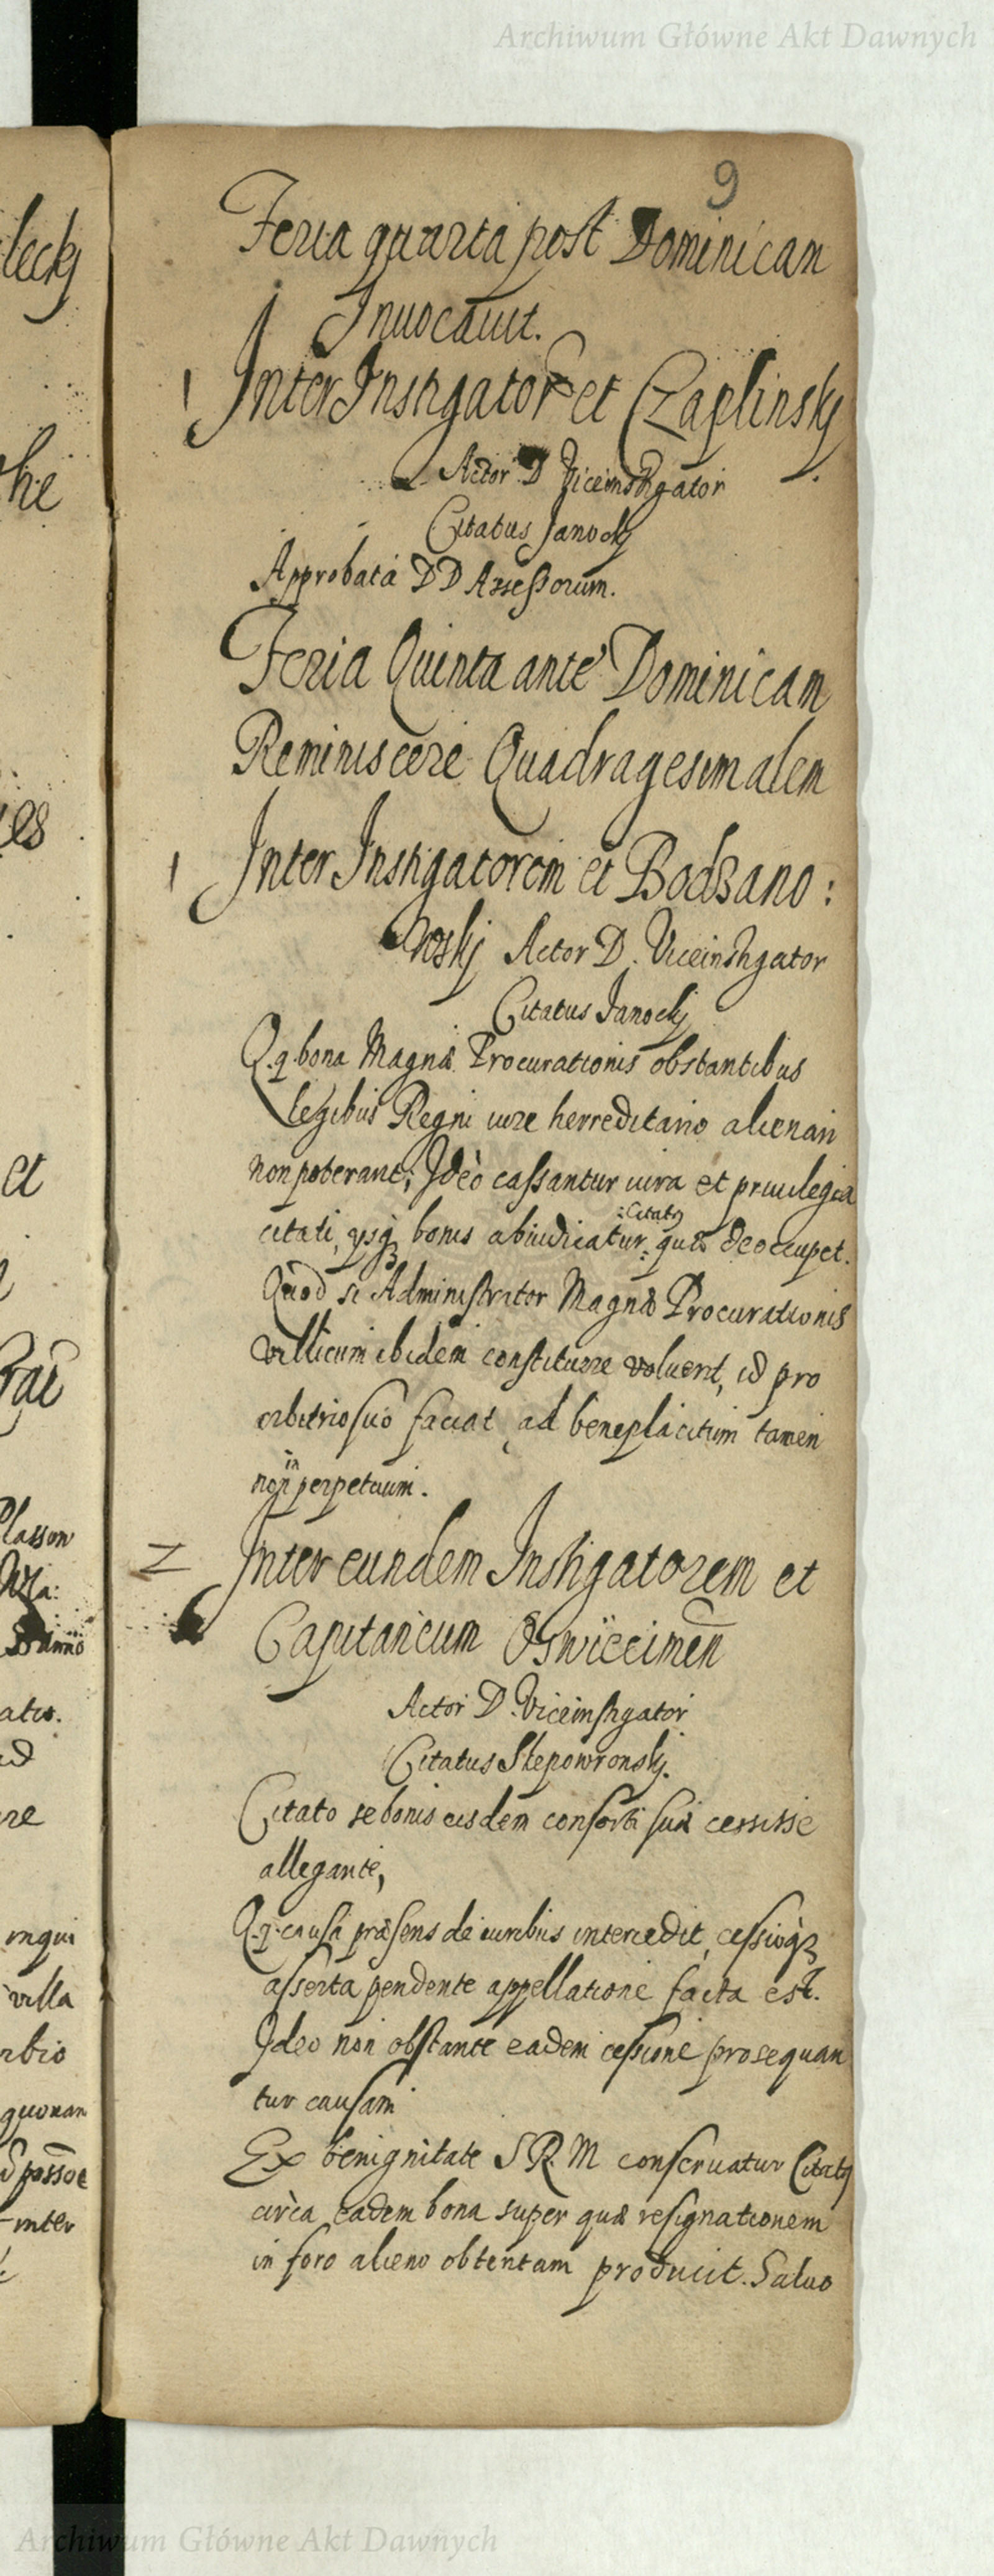 Archiwum Główne Akt Dawnych
9
Feria quarta post Dominicam
Inuocauit.
1 Inter Instigator et Czaplinskj
Actor D Viceinstigator
Citatus Janockj
Approbata DD Assessorum.
Feria Quinta ante Dominicam
Reminiscere Quadragesimalem
1 Inter Instigatorem et Bodzano:
woskj Actor D. Viceinstigator
Citatus Janockj
Q.q. bona Magnæ Procurationis obstantibus
legibus Regni iure herreditario alienari
non poterant; Ideò cassantur iura et priuilegia
:Citatq
citati, ysq bonis abiudicatur: quæ deoccupet.
Quòd si Administrator Magnæ Procurationis
villicum ibidem constituere voluerit, id pro
arbitrio suo faciat, ad beneplacitum tamen
in
non perpetuum.
2 Inter eundem Instigatorem et
Capitaneum Oswiecimen
Actor D. Viceinstigator
Citatus Slepowronskj.
Citato se bonis eisdem consorti suæ cessisse
allegante,
Q.q. causa præsens de iuribus intercedit, cessioq
asserta pendente appellatione facta est.
Ideo non obstante eadem cessione prosequan
tur causam
Ex benignitate S R. M conseruatur Citatq
circa eadem bona super quæ resignationem
in foro alieno obtentam producit. Saluo
leckj
et
villa
inter
Archiwum Główne Akt Dawnych